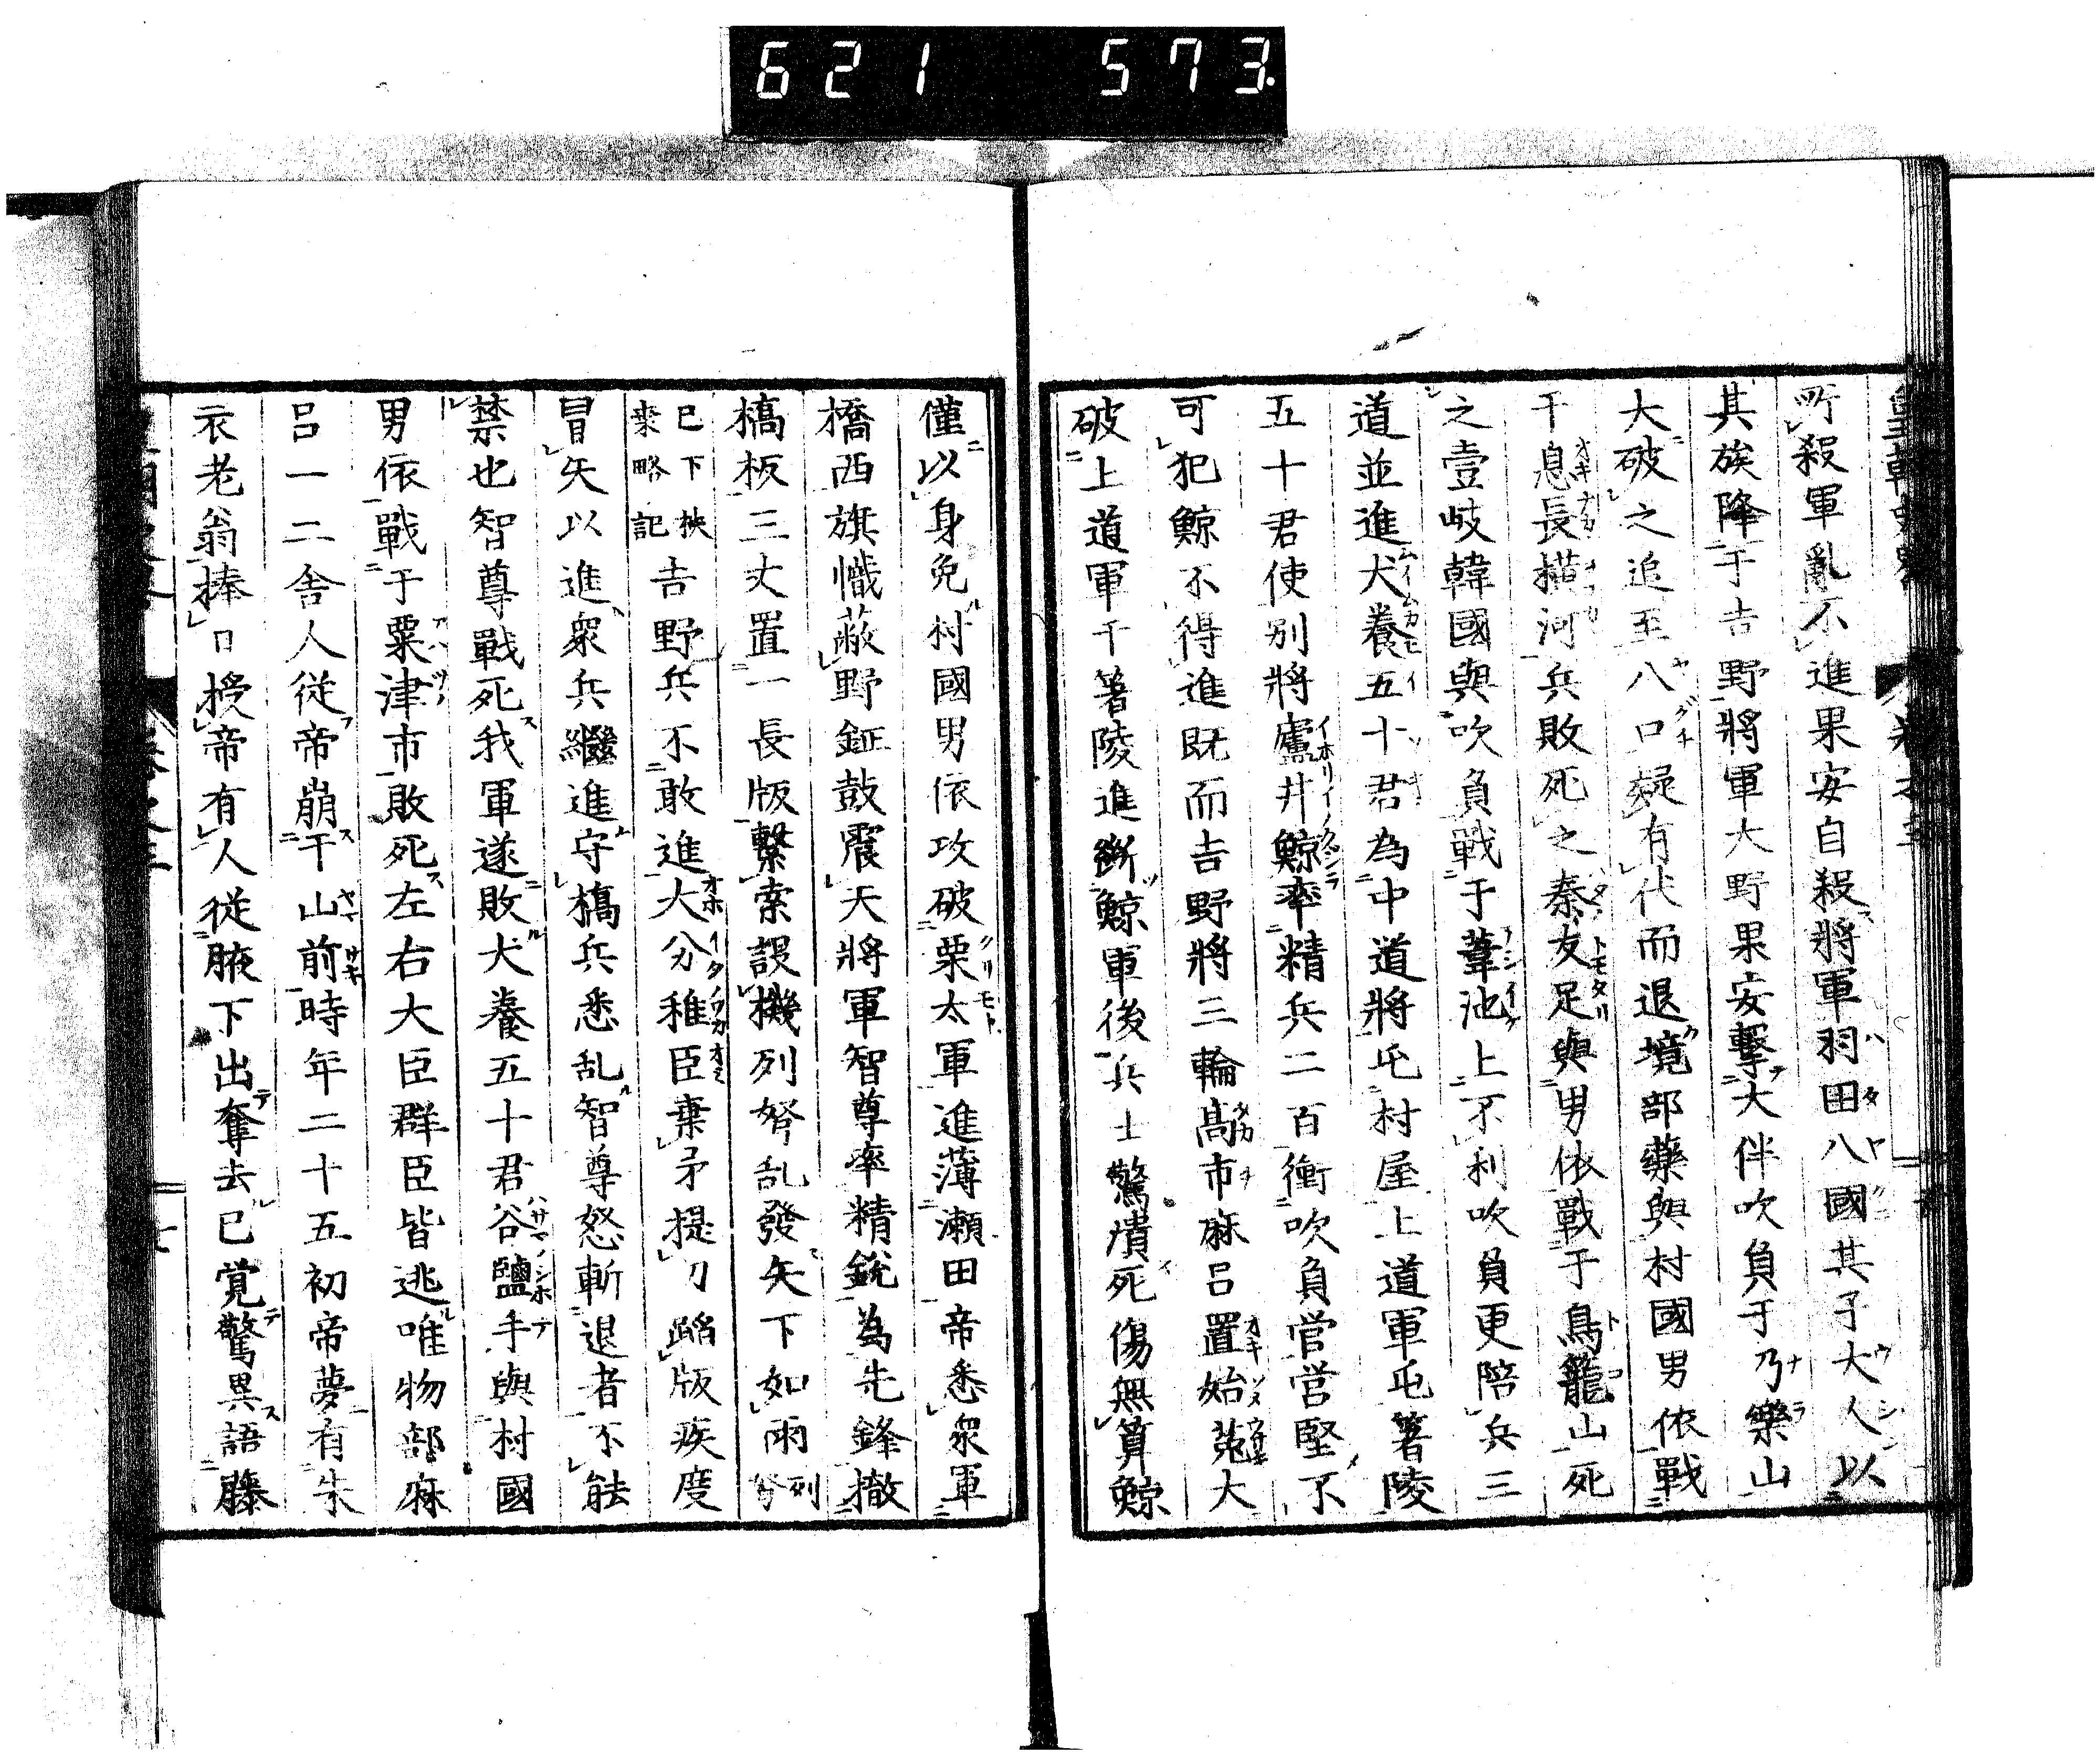 621 573
所殺軍亂不進果安自殺將軍羽田八國其子大人以
其族降于吉野將軍大野果安擊大伴吹負于乃樂山
大破之追至八口疑有伏而退境部藥與村國男依戰
于息長橫河兵敗死之秦友足與男依戰于鳥籠山死
之壹岐韓國與吹負戰于葦池上不利吹負更陪兵三
道並進犬養五十君為中道將屯村屋上道軍屯箸陵
五十君使別將廬井鯨率精兵二百衝吹負営営堅不
可犯鯨不得進既而吉野將三輪高市麻呂置始菟大
破上道軍于箸陵進斷鯨軍後兵士驚潰死傷無算鯨
僅以身免村國男依攻破栗太軍進薄瀨田帝悉衆軍
橋西旗幟蔽野鉦鼓震天將軍智尊率精銳為先鋒撤
橋板三丈置一長版繫索設機列弩乱發矢下如雨列弩
已下扶桒略記吉野兵不敢進大分稚臣棄矛提刀蹈版疾度
冒矢以進衆兵繼進守橋兵悉乱智尊怒斬退者不能
禁也智尊戰死我軍遂敗犬養五十君谷鹽手與村國
男依戰于粟津市敗死左右大臣群臣皆逃唯物部麻
呂一二舍人從帝崩于山前時年二十五初帝夢有朱
衣老翁捧日授帝有人從腋下出奪去已覚驚異語藤